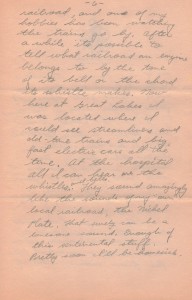 - 5 -
railroad, and one of my
hobbies has been watching
the trains go by. After
a while its possible to
tell what railroad an engine
belongs to by the tone
of its bell or the chord
its whistle makes. Now
here at Great Lakes I
was located where I
could see streamliners and
old time trains and big
fast electric cars all the
time. At the hospital
all I can hear are the
whistles. They sound amazingly
like the sounds of my own
local railroad, the Nickel
Plate. That surely can be a
welcome sound. Enough of
this sentimental stuff.
Pretty soon I'll be homesick.